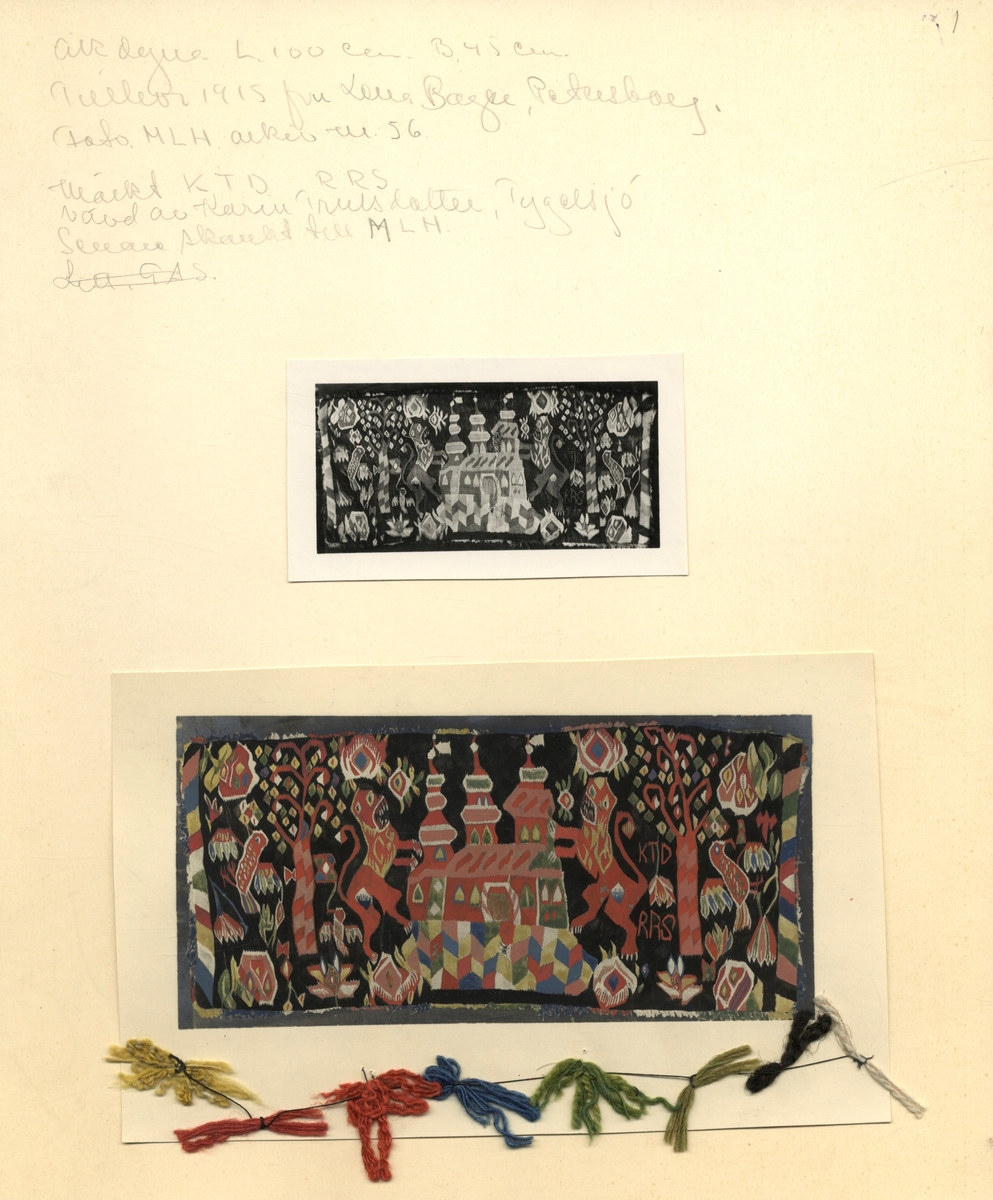 Åkdyna L. 100 cm. B. 45 cm.
Tillhör 1915 fru Lena Bager, Petersborg.
Foto. MLH arkiv nr. 56
Märkt KTD RRS
vävd av Karin Trulsdotter, Tygelsjö
Senare skänkt till MLH.
Litt. GAS.
KTD
RRS